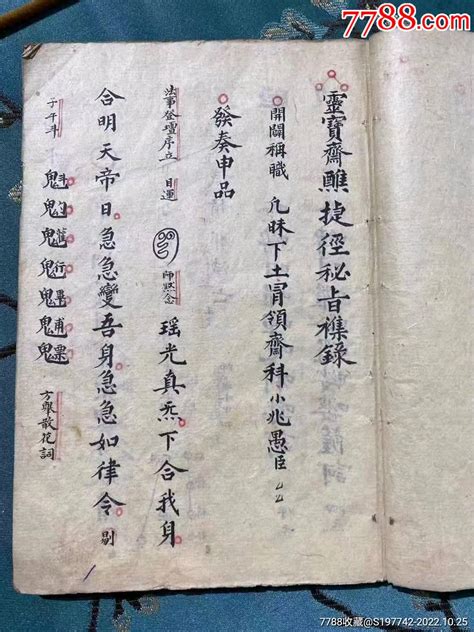 7788.com
中国收藏热线
靈寶齋醮捷徑秘旨襍錄
開闢稱職 凡昧下土冐領齋科小兆愚臣ㄙㄙ
發奏申品
法事登壇序立 目運 師默念 瑤光真炁下合我身
合明天帝日急急變吾身急急如律令 剔
子午斗 魁𩲃䰱䰢魓𩳐魒 方舉散花詞
7788收藏@S197742-2022.10.25